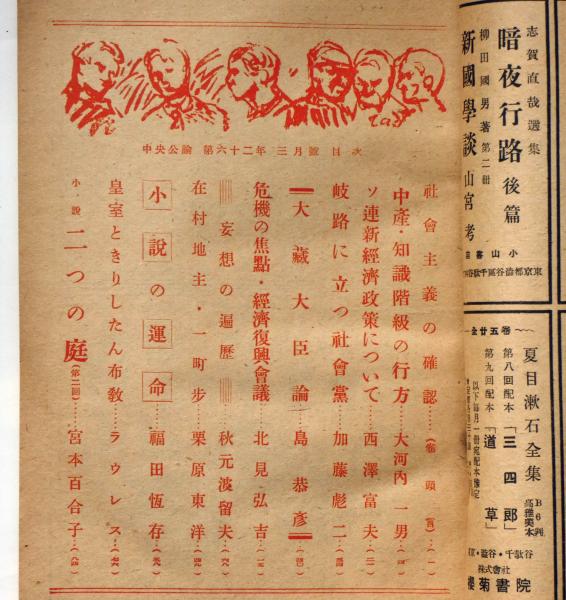 中央公論 第六十二年 三月號 目次
社會主義の確認……(卷頭言)…(一)
中産・知識階級の行方……大河内一男…(四)
ソ連新經濟政策について……西澤富夫…
岐路に立つ社會黨……加藤彪二…
大藏大臣論……島恭彦…
危機の焦點・經濟復興會議……北見弘吉…
妄想の遍歷 秋元波留夫…
在村地主・一町歩……栗原東洋…
小說の運命……福田恆存…
皇室ときりしたん布敎……ラウレス…
小・說 二つの庭(第二回)……宮本百合子…
志賀直哉選集
暗夜行路 後篇
柳田國男著 第二冊
新國學談 山宮考
小山書店
東京都澁谷區千駄谷
全廿五卷
夏目漱石全集
B6判
高雅美本
第八回配本「三四郎」
第九回配本「道草」
以下毎月一冊宛配本確定
株式會社
櫻菊書院